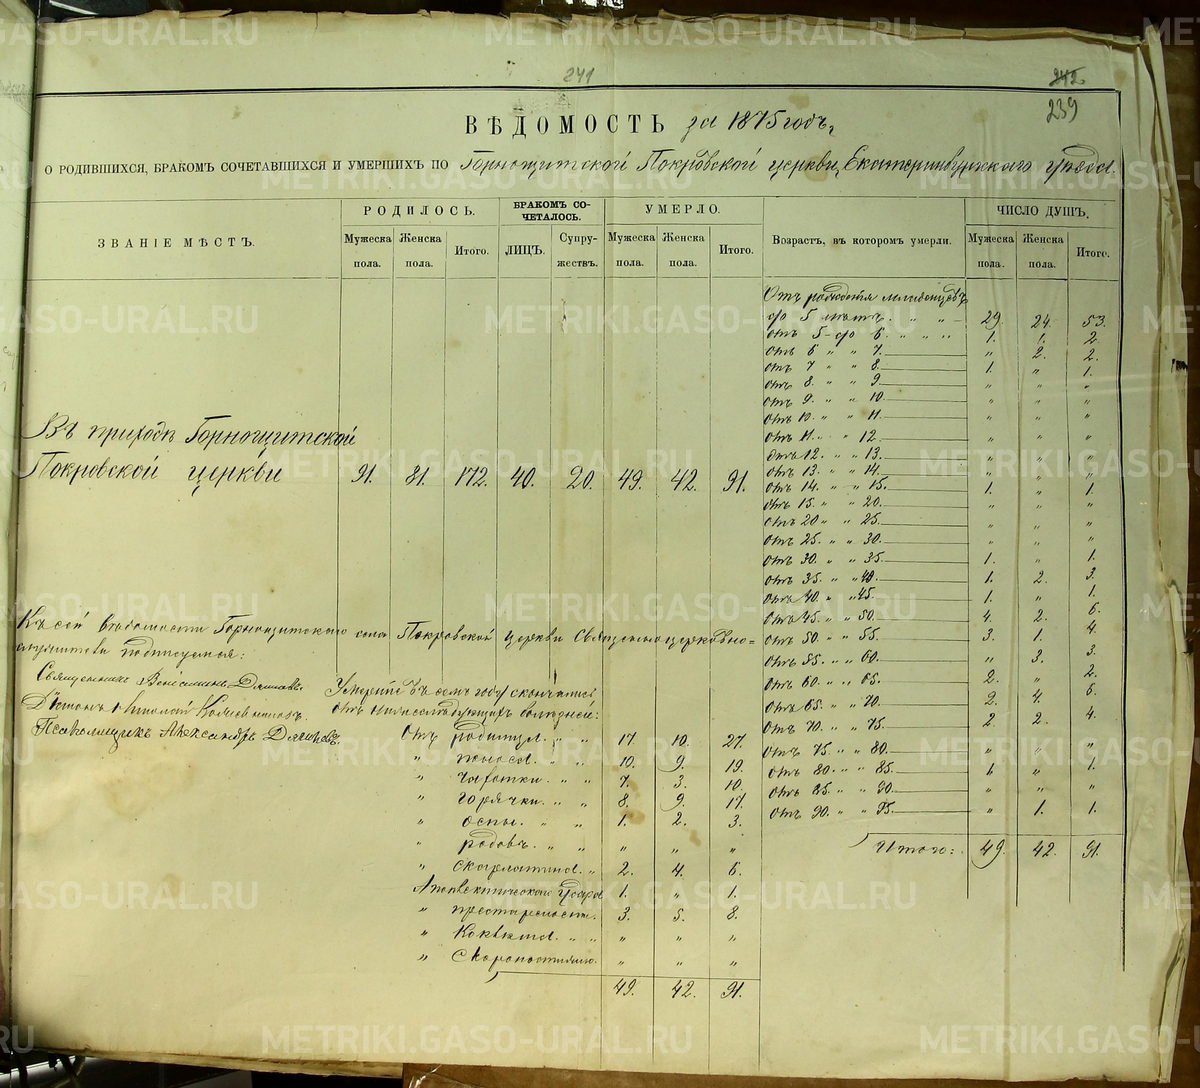 241
242.
239
ВѢДОМОСТЬ за 1875 годъ,
О РОДИВШИХСЯ, БРАКОМЪ СОЧЕТАВШИХСЯ И УМЕРШИХЪ ПО Горнощитской Покровской церкви, Екатеринбургскаго уѣзда.
ЗВАНІЕ МѢСТЪ.
РОДИЛОСЬ.
Мужеска пола.
Женска пола.
Итого.
БРАКОМЪ СОЧЕТАЛОСЬ.
ЛИЦЪ.
Супружествъ.
УМЕРЛО.
Мужеска пола.
Женска пола.
Итого.
Возрастъ, въ которомъ умерли.
ЧИСЛО ДУШЪ.
Мужеска пола.
Женска пола.
Итого.
Въ приходѣ Горнощитской
Покровской церкви 91. 81. 172. 40. 20. 49. 42. 91.
Отъ рожденія младенцевъ
до 5 лѣтъ. „ „ 29. 24. 53.
отъ 5 до 6. „ „ „ 1. 1. 2.
отъ 6 „ „ 7. „ 2. 2.
отъ 7 „ „ 8. 1. „ 1.
отъ 8. „ „ 9. „ „ „
отъ 9. „ „ 10. „ „ „
отъ 10. „ „ 11. „ „ „
отъ 11. „ „ 12. „ „ „
отъ 12. „ „ 13. „ „ „
отъ 13. „ „ 14. „ „ „
отъ 14. „ „ 15. 1. „ 1.
отъ 15. „ „ 20. „ „ „
отъ 20 „ „ 25. „ „ „
отъ 25. „ „ 30. „ „ „
отъ 30. „ „ 35. 1. „ 1.
отъ 35. „ „ 40. 1. 2. 3.
отъ 40. „ „ 45. 1. „ 1.
отъ 45. „ „ 50. 4. 2. 6.
отъ 50. „ „ 55. 3. 1. 4.
отъ 55. „ „ 60. „ 3. 3.
отъ 60. „ „ 65. 2. „ 2.
отъ 65. „ „ 70. 2. 4. 6.
отъ 70. „ „ 75. 2 2. 4.
отъ 75. „ „ 80. „ „ „
отъ 80. „ „ 85. 1 „ 1.
отъ 85. „ „ 90. „ „ „
отъ 90. „ „ 95. „ 1. 1.
Итого: 49. 42. 91.
Къ сей вѣдомости Горнощитскаго села Покровской церкви Священноцерковно=
служители подписуемся:
Священникъ Веніаминъ
Діаконъ Николай
Псаломщикъ Александръ
Умершіе въ семъ году скончались
отъ нижеслѣдующихъ болѣзней:
Отъ родимца. „ „ 17. 10. 27.
„ поноса. „ „ 10. 9. 19.
„ чахотки. „ „ 7. 3. 10.
„ горячки. „ „ 8. 9. 17.
„ оспы. „ „ 1. 2. 3.
„ родовъ. „ „ „ „ „
„ скарлатина. „ 2. 4. 6.
Апоплектическаго удара 1. „ 1.
„ престарелости. 3. 5. 8.
„ Коклюша. „ „ „ „ „
„ Скоропостижно. „ „ „
49. 42. 91.
METRIKI.GASO-URAL.RU